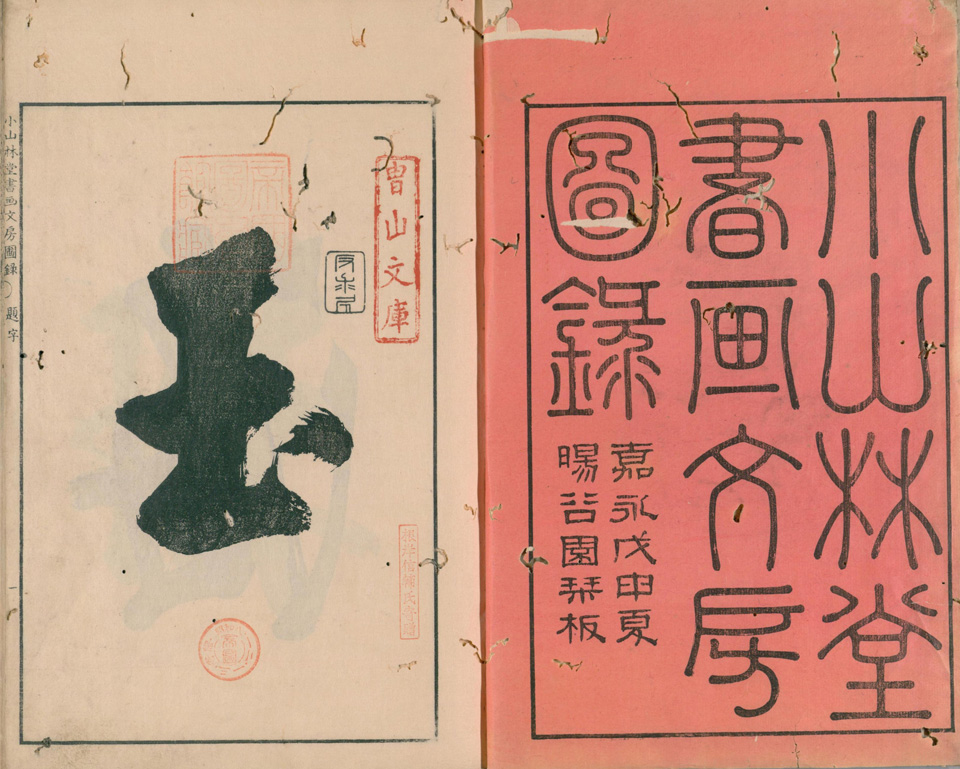 小山林堂
書画文房
圖錄
嘉永戊申夏
暘谷園栞板
曽山文庫
玉
小山林堂書画文房圖録 題字
一